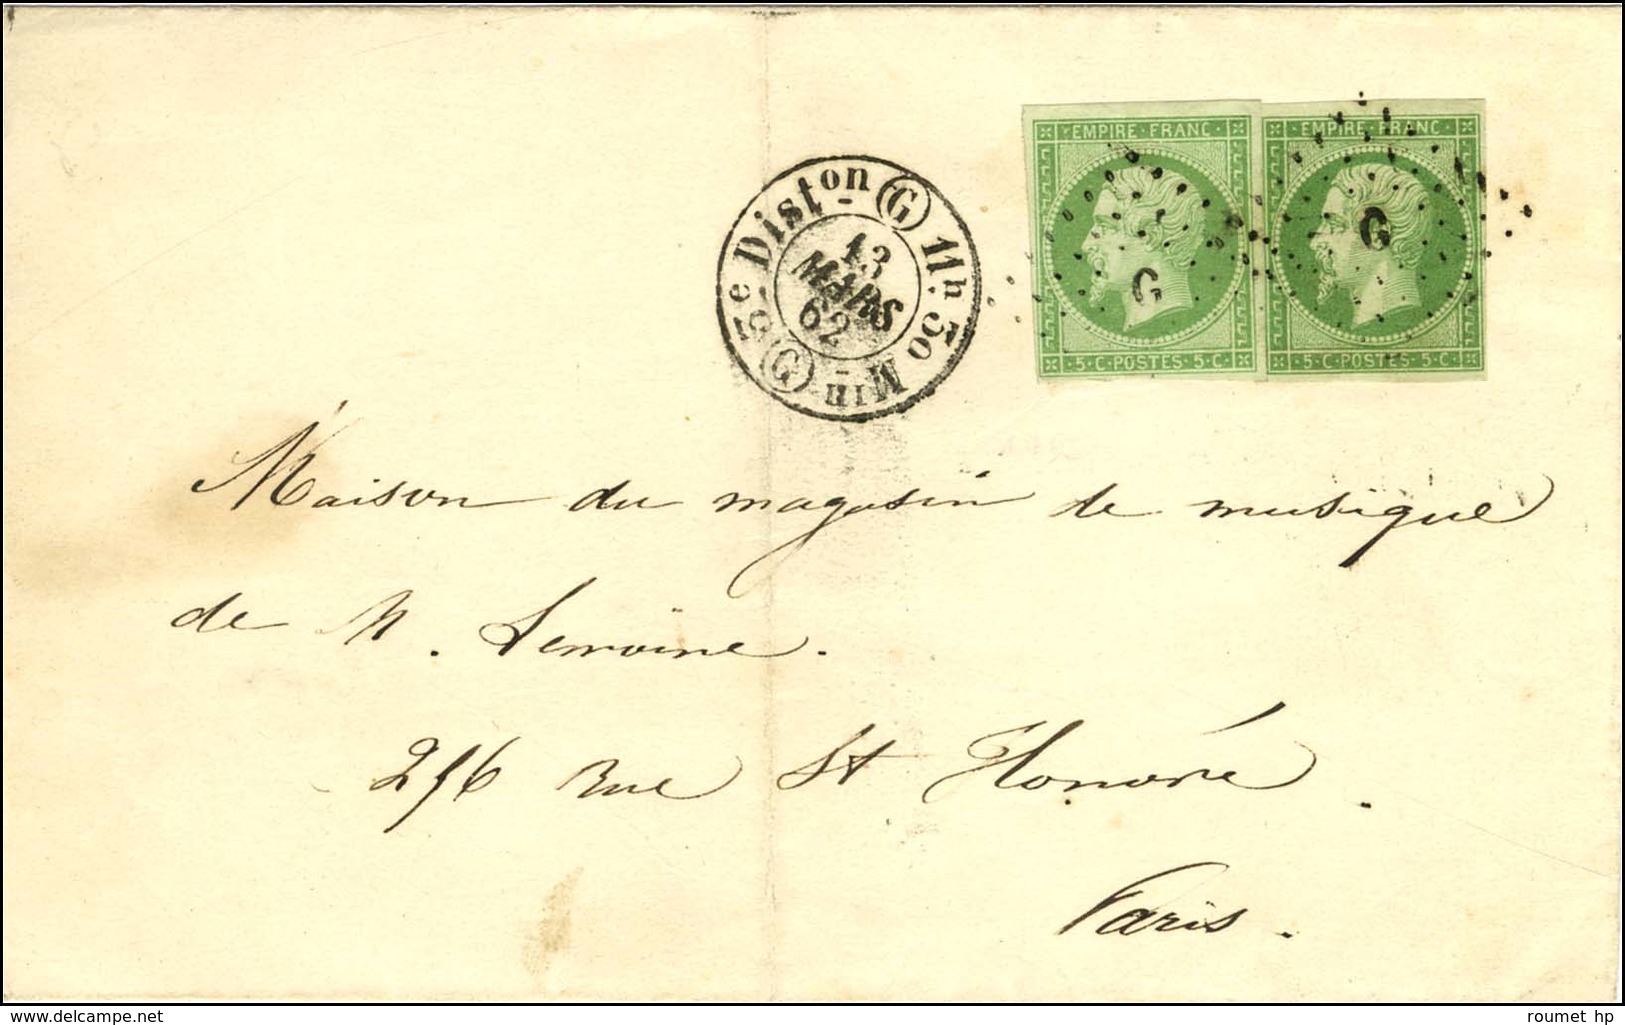 EMPIRE · FRANC ·
G
· 5 · C · POSTES · 5 · C ·
EMPIRE · FRANC ·
G
· 5 · C · POSTES · 5 · C ·
Diston G 11h. 50 Min G
13
MARS
62
Maison du magasin de musique
de M. Lemoine.
256 Rue St Honoré.
Paris.
www.delcampe.net
roumet hp